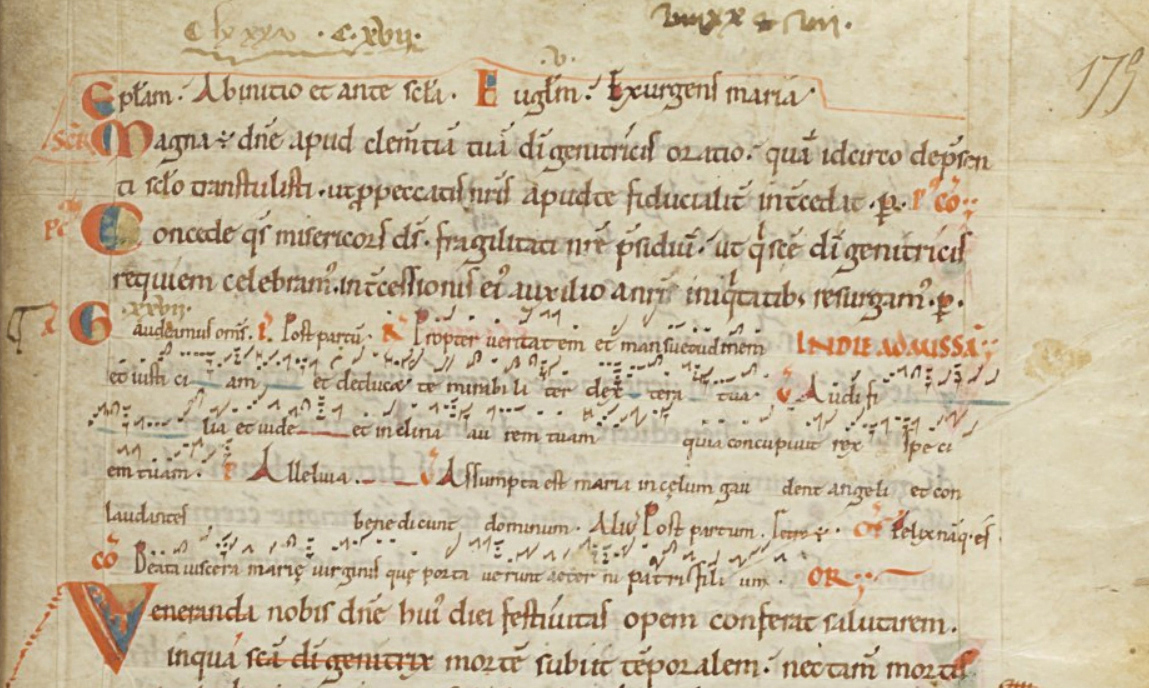 Clxxxv · C·xvii·
179
·v·
Ep̄lam· Abinitio et ante sc̄la· Euglm̄· Exurgens maria
Magna ÷ dn̄e apud clem̄tiā tuā dī genitricis oratio· quā idcirco dep̄sen
ti sc̄lo transtulisti· ut p peccatis nr̄is apud te fiducialit̄ int̄cedat· p̱·
Pc̄ Concede qs̄ misericors ds̄· fragilitati nr̄ę p̄sidiū· ut q sc̄ę dī genitricis
requiem celebram᷒· int̄cessionis ei᷒ auxilio a nr̄is iniq̇tatib; resurgam᷒· p̱·
·xxvii·
Gaudeamus om̄s· Post partū· Propter veritatem et mansuetudinem INDIE AD MISSĀ
et iusti ci am et deducet te mirabi li ter dex tera tua· Audi fi
lia et uide et inclina au rem tuam quia concupiuit rex spe ci
em tuam· Alleluia· Assumpta est maria in cęlum gau dent angeli et con
laudantes bene dicunt dominum· Post partum· Felix nāq· es·
cō Beata uiscera marię uirginis quę porta uerunt aeter ni patris fili um· OR
Veneranda nobis dn̄e hui᷒ diei festiuitas opem conferat salutarem·
in qua sc̄a dī genitrix mortē subiit tēporalem· nec tam̄ mortis